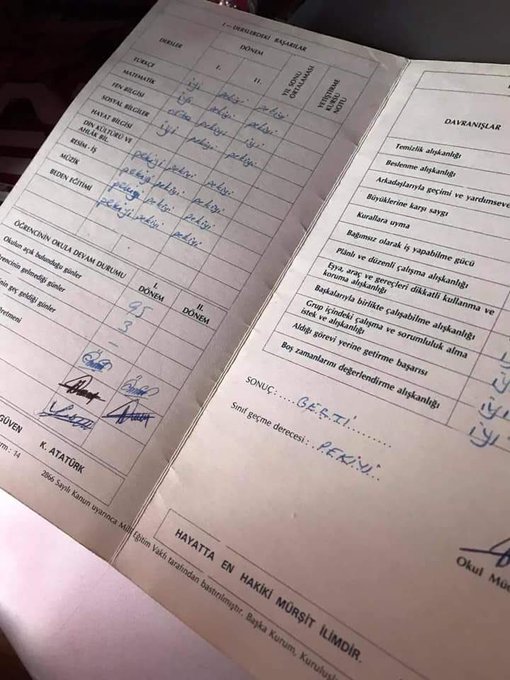 I — DERSLERDEKİ BAŞARILAR
DERSLER
DÖNEM
I.
II.
YIL SONU ORTALAMASI
YETİŞTİRME KURSU NOTU
TÜRKÇE iyi pekiyi pekiyi
MATEMATİK iyi pekiyi pekiyi
FEN BİLGİSİ orta pekiyi pekiyi
SOSYAL BİLGİLER iyi iyi iyi
HAYAT BİLGİSİ
DİN KÜLTÜRÜ VE AHLÂK BİL. pekiyi pekiyi pekiyi
RESİM - İŞ pekiyi pekiyi pekiyi
MÜZİK pekiyi pekiyi pekiyi
BEDEN EĞİTİMİ pekiyi pekiyi pekiyi
ÖĞRENCİNİN OKULA DEVAM DURUMU
I. DÖNEM
II. DÖNEM
Okulun açık bulunduğu günler 95
gelmediği günler 3
geç geldiği günler –
GÜVEN
K. ATATÜRK
: 14
2866 Sayılı Kanun uyarınca Milli Eğitim Vakfı tarafından bastırılmıştır. Başka Kurum,
DAVRANIŞLAR
Temizlik alışkanlığı
Beslenme alışkanlığı
Arkadaşlarıyla geçimi ve
Büyüklerine karşı saygı
Kurallara uyma
Bağımsız olarak iş yapabilme gücü
Plânlı ve düzenli çalışma alışkanlığı
Eşya, araç ve gereçleri dikkatli kullanma ve
koruma alışkanlığı
Başkalarıyla birlikte çalışabilme alışkanlığı
Grup içindeki çalışma ve sorumluluk alma
istek ve alışkanlığı
Aldığı görevi yerine getirme başarısı
Boş zamanlarını değerlendirme alışkanlığı
iyi
iyi
iyi
SONUÇ: GEÇTİ
Sınıf geçme derecesi: PEKİYİ
Okul
HAYATTA EN HAKİKİ MÜRŞİT İLİMDİR.